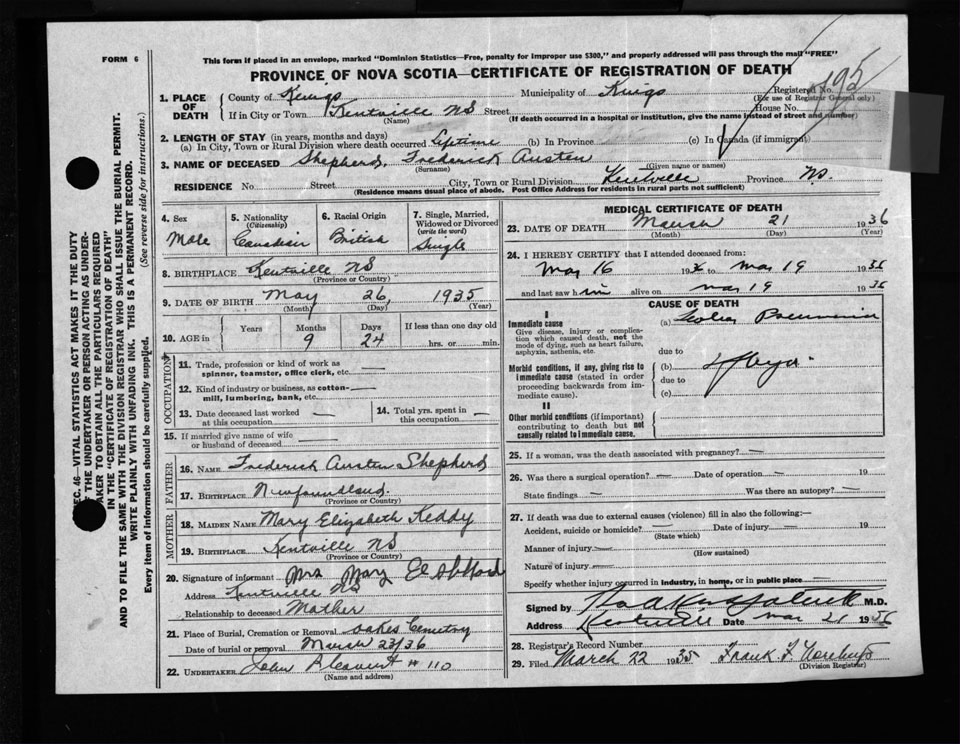 FORM 6
This form if placed in an envelope, marked "Dominion Statistics—Free, penalty for improper use $300," and properly addressed will pass through the mail "FREE"
PROVINCE OF NOVA SCOTIA—CERTIFICATE OF REGISTRATION OF DEATH
195
1. PLACE OF DEATH
County of Kings Municipality of Kings Registered No.
(For use of Registrar General only)
If in City or Town Kentville NS Street House No.
(Name) (If death occurred in a hospital or institution, give the name instead of street and number)
2. LENGTH OF STAY (in years, months and days)
(a) In City, Town or Rural Division where death occurred Lifetime (b) In Province (c) In Canada (if immigrant)
3. NAME OF DECEASED Shepherd, Frederick Austen
(Surname) (Given name or names)
RESIDENCE No. Street City, Town or Rural Division Kentville Province NS.
(Residence means usual place of abode. Post Office Address for residents in rural parts not sufficient)
4. Sex Male
5. Nationality (Citizenship) Canadian
6. Racial Origin British
7. Single, Married, Widowed or Divorced (write the word) Single
8. BIRTHPLACE Kentville NS
(Province or Country)
9. DATE OF BIRTH May 26, 1935
(Month) (Day) (Year)
10. AGE in Years Months 9 Days 24 If less than one day old hrs. or min.
OCCUPATION
11. Trade, profession or kind of work as spinner, teamster, office clerk, etc. —
12. Kind of industry or business, as cotton-mill, lumbering, bank, etc. —
13. Date deceased last worked at this occupation —
14. Total yrs. spent in this occupation —
15. If married give name of wife or husband of deceased —
FATHER
16. NAME Frederick Austen Shepherd
17. BIRTHPLACE Newfoundland.
(Province or Country)
MOTHER
18. MAIDEN NAME Mary Elizabeth Keddy
19. BIRTHPLACE Kentville NS
(Province or Country)
20. Signature of informant Mrs Mary
Address Kentville NS
Relationship to deceased Mother
21. Place of Burial, Cremation or Removal Oakes Cemetry
Date of burial or removal March 23/36
22. UNDERTAKER John # 110
(Name and address)
MEDICAL CERTIFICATE OF DEATH
23. DATE OF DEATH March 21 1936
(Month) (Day) (Year)
24. I HEREBY CERTIFY that I attended deceased from:
Mar 16 1936 to Mar 19 1936
and last saw him alive on Mar 19 1936
CAUSE OF DEATH
I
Immediate cause
Give disease, injury or complication which caused death, not the mode of dying, such as heart failure, asphyxia, asthenia, etc.
(a) Pneumonia
due to
Morbid conditions, if any, giving rise to immediate cause (stated in order proceeding backwards from immediate cause).
(b)
due to
(c)
II
Other morbid conditions (if important) contributing to death but not causally related to immediate cause.
25. If a woman, was the death associated with pregnancy? —
26. Was there a surgical operation? — Date of operation — 19
State findings — Was there an autopsy? —
27. If death was due to external causes (violence) fill in also the following:—
Accident, suicide or homicide? — Date of injury — 19
(State which)
Manner of injury —
(How sustained)
Nature of injury —
Specify whether injury occurred in industry, in home, or in public place —
Signed by M.D.
Address Kentville Date Mar 21 1936
28. Registrar's Record Number
29. Filed March 22 Frank F
(Division Registrar)
SEC. 46—VITAL STATISTICS ACT MAKES IT THE DUTY
OF THE UNDERTAKER OR PERSON ACTING AS UNDER-
TAKER TO OBTAIN ALL THE PARTICULARS REQUIRED
IN THE "CERTIFICATE OF REGISTRATION OF DEATH"
AND TO FILE THE SAME WITH THE DIVISION REGISTRAR WHO SHALL ISSUE THE BURIAL PERMIT.
WRITE PLAINLY WITH UNFADING INK. THIS IS A PERMANENT RECORD.
Every item of Information should be carefully supplied. (See reverse side for instructions.)